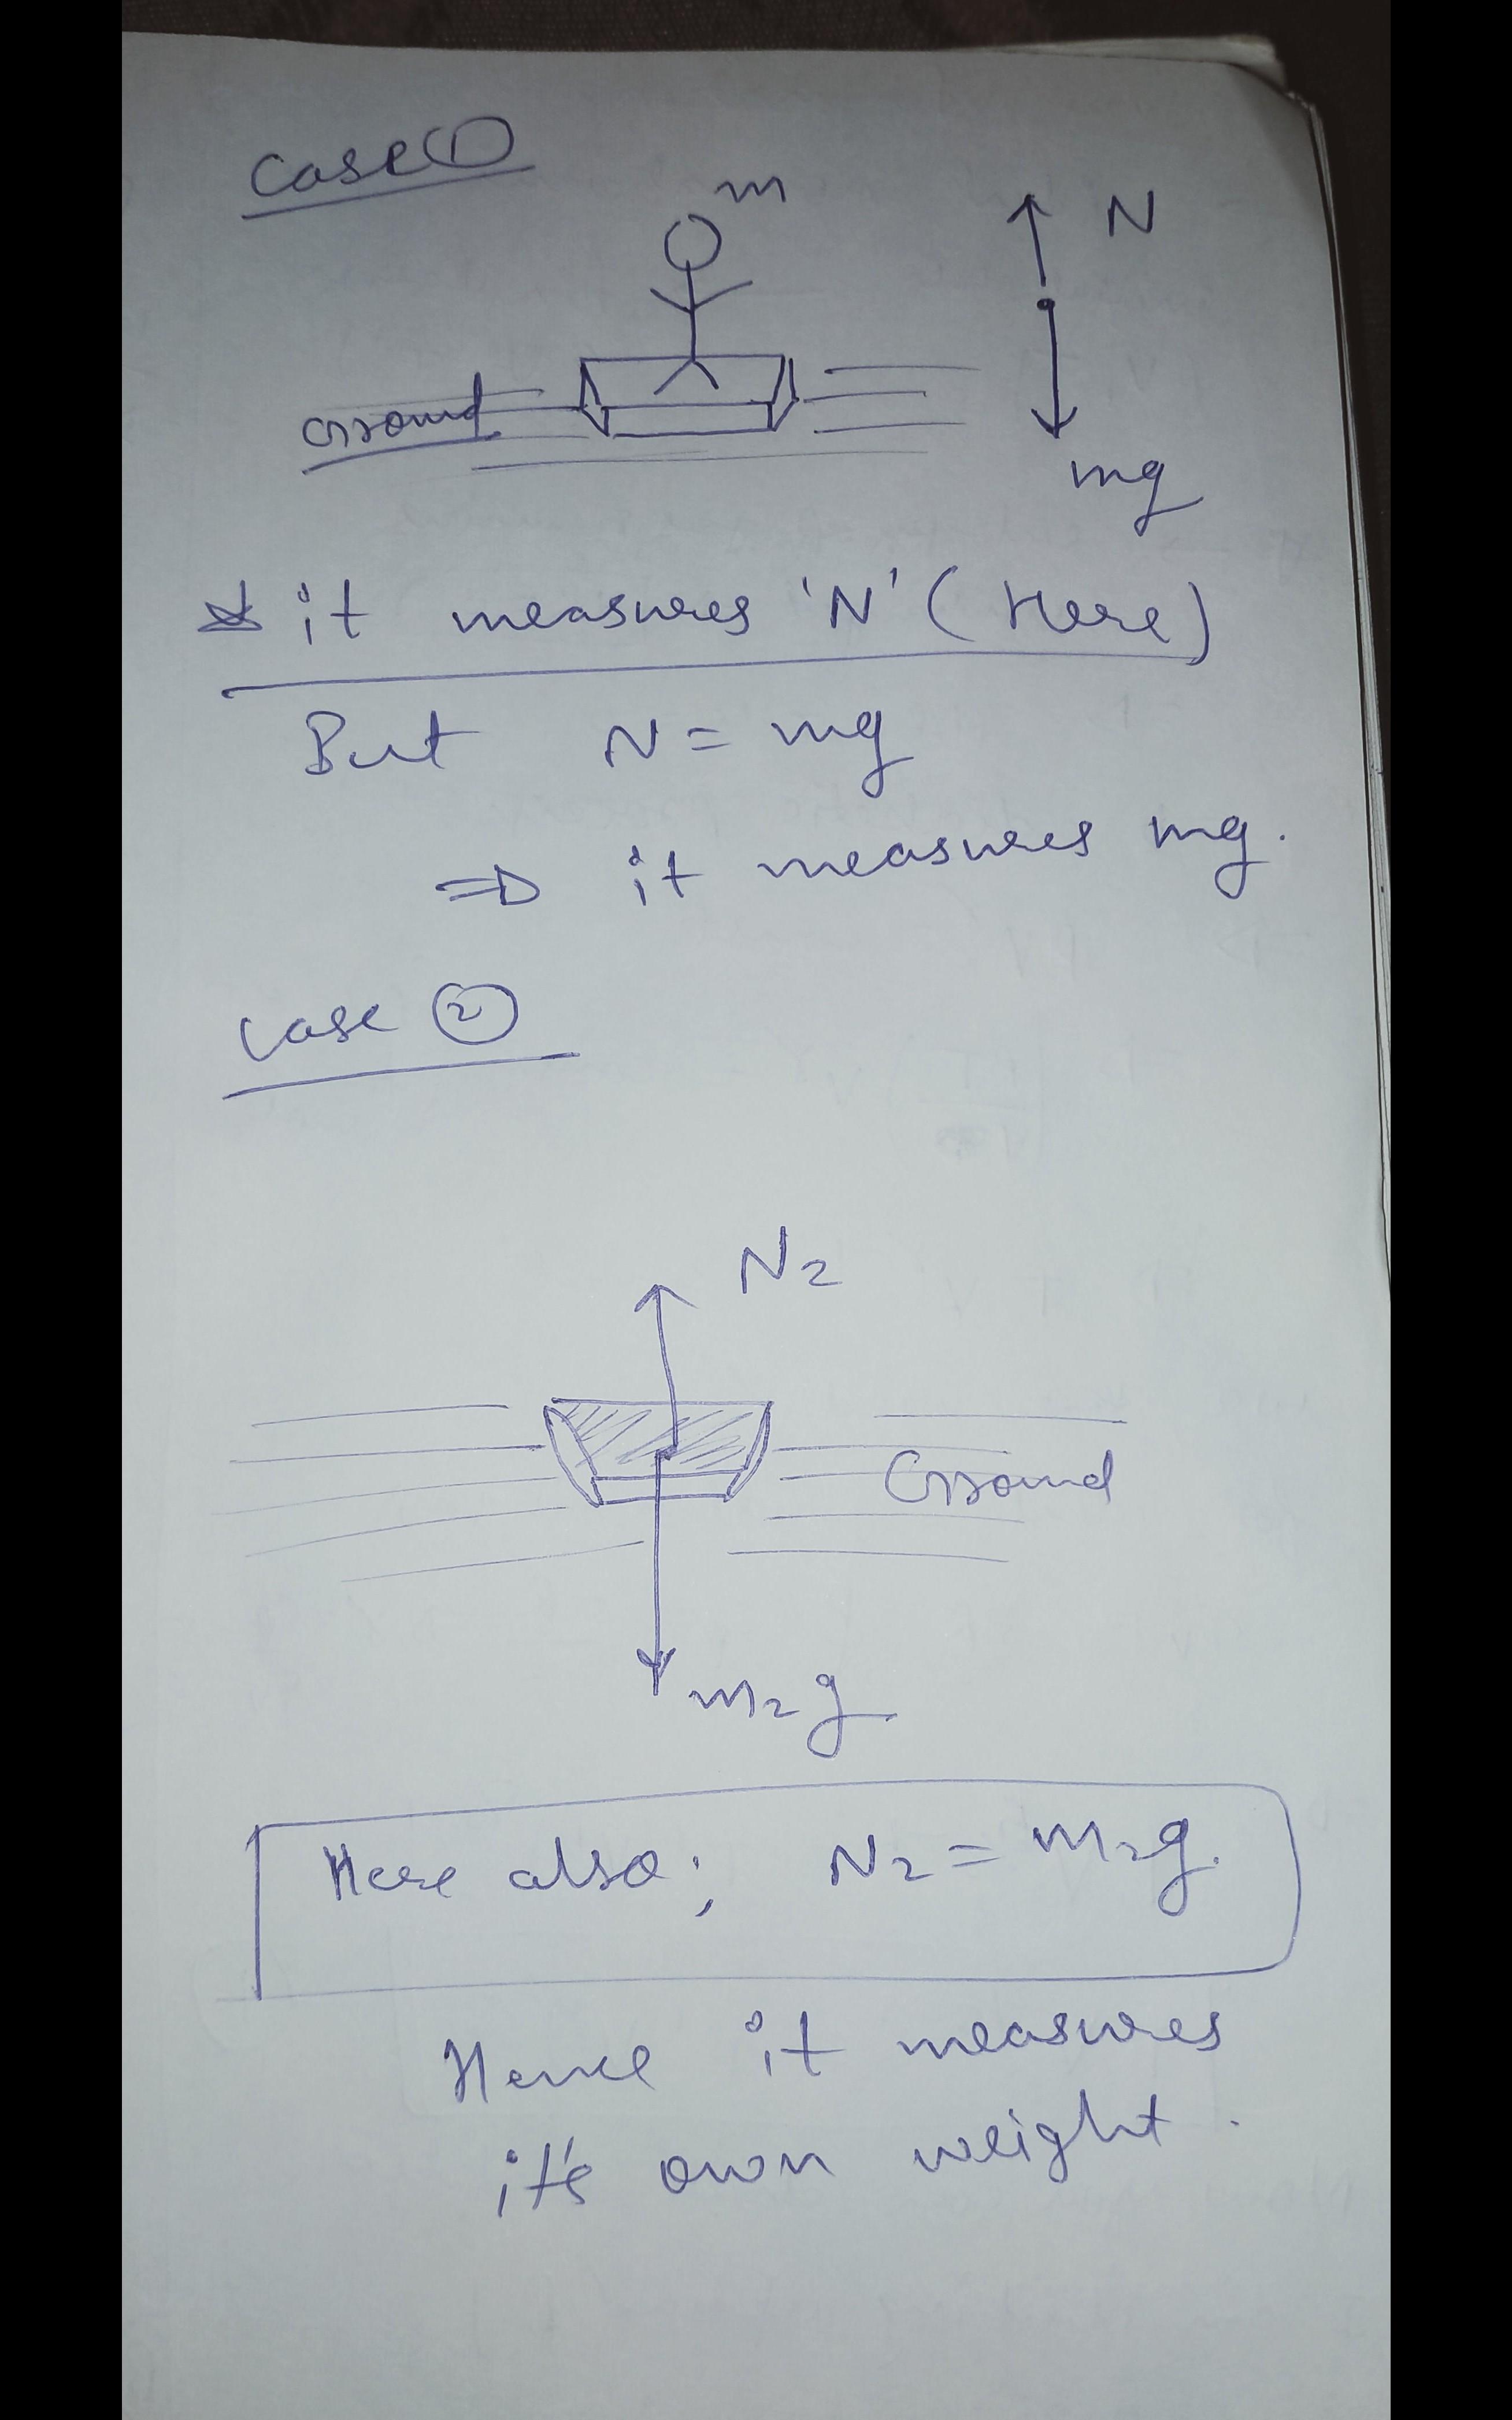 Case ①
m
N
Ground
mg
it measures 'N' (Here)
But N = mg
⇒ it measures mg.
Case ②
N2
Ground
m2g
Here also; N2 = m2g.
Hence it measures
it's own weight.